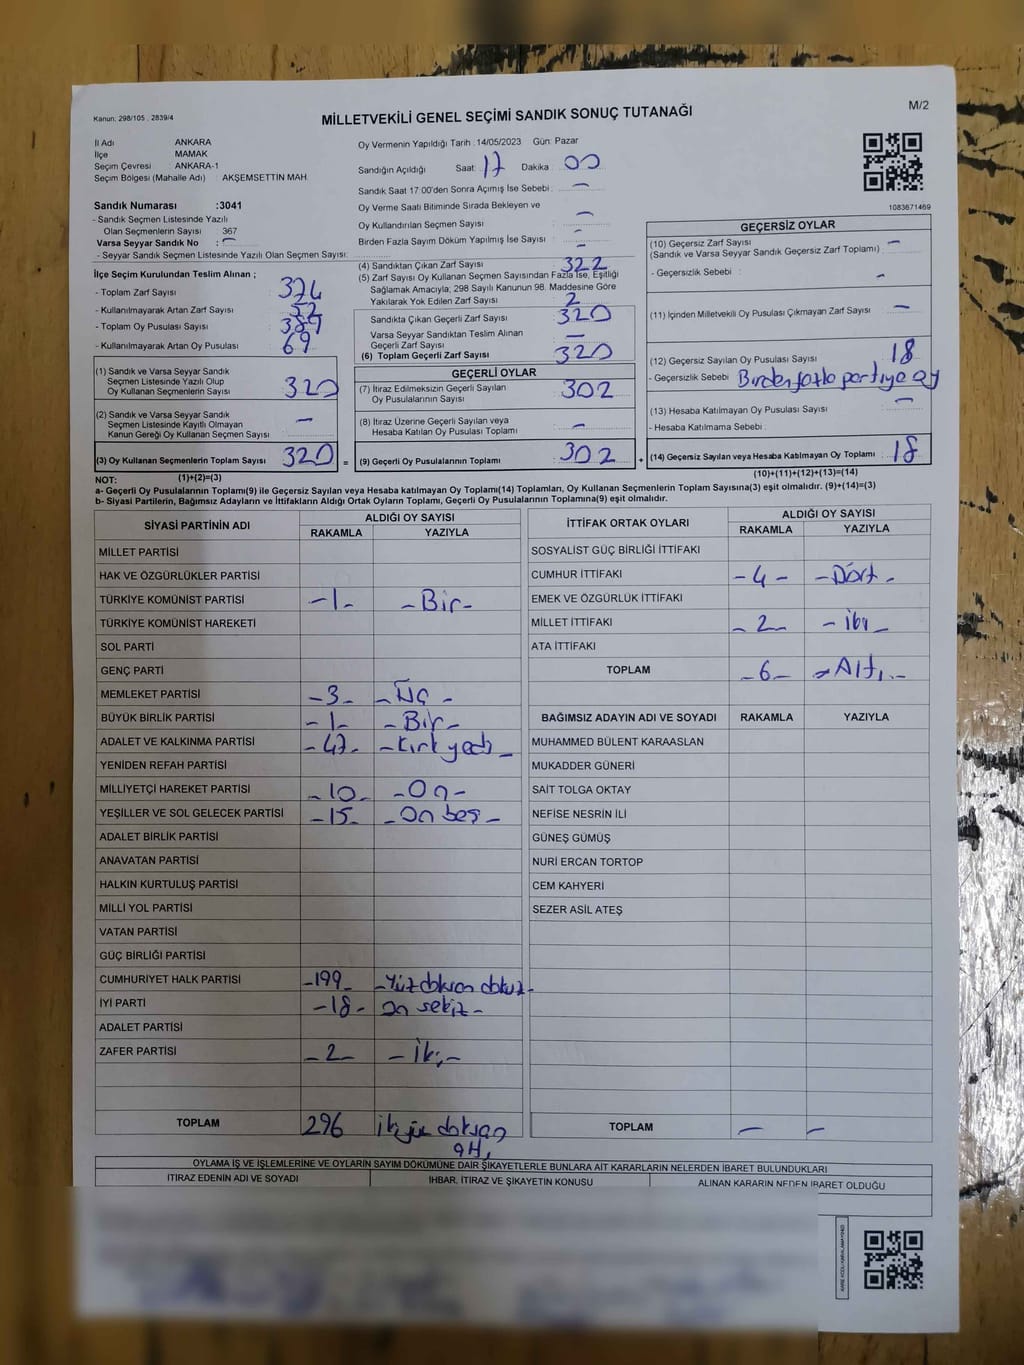 Kanun: 298/105 , 2839/4
MİLLETVEKİLİ GENEL SEÇİMİ SANDIK SONUÇ TUTANAĞI
M/2
İl Adı : ANKARA
İlçe : MAMAK
Seçim Çevresi : ANKARA-1
Seçim Bölgesi (Mahalle Adı) : AKŞEMSETTİN MAH.
Sandık Numarası :3041
- Sandık Seçmen Listesinde Yazılı
Olan Seçmenlerin Sayısı : 367
Varsa Seyyar Sandık No : -
- Seyyar Sandık Seçmen Listesinde Yazılı Olan Seçmen Sayısı:
Oy Vermenin Yapıldığı Tarih :14/05/2023 Gün: Pazar
Sandığın Açıldığı Saat: 17 Dakika: 00
Sandık Saat 17:00'den Sonra Açımış İse Sebebi : -
Oy Verme Saati Bitiminde Sırada Bekleyen ve
Oy Kullandırılan Seçmen Sayısı : -
Birden Fazla Sayım Döküm Yapılmış İse Sayısı : -
1083671469
İlçe Seçim Kurulundan Teslim Alınan ;
- Toplam Zarf Sayısı
- Kullanılmayarak Artan Zarf Sayısı : 52
- Toplam Oy Pusulası Sayısı : 389
- Kullanılmayarak Artan Oy Pusulası : 69
(1) Sandık ve Varsa Seyyar Sandık
Seçmen Listesinde Yazılı Olup
Oy Kullanan Seçmenlerin Sayısı 320
(2) Sandık ve Varsa Seyyar Sandık
Seçmen Listesinde Kayıtlı Olmayan
Kanun Gereği Oy Kullanan Seçmen Sayısı -
(3) Oy Kullanan Seçmenlerin Toplam Sayısı 320
(1)+(2)=(3)
(4) Sandıktan Çıkan Zarf Sayısı : 322
(5) Zarf Sayısı Oy Kullanan Seçmen Sayısından Fazla İse, Eşitliği
Sağlamak Amacıyla, 298 Sayılı Kanunun 98. Maddesine Göre
Yakılarak Yok Edilen Zarf Sayısı : 2
Sandıkta Çıkan Geçerli Zarf Sayısı : 320
Varsa Seyyar Sandıktan Teslim Alınan
Geçerli Zarf Sayısı : -
(6) Toplam Geçerli Zarf Sayısı 320
GEÇERLİ OYLAR
(7) İtiraz Edilmeksizin Geçerli Sayılan
Oy Pusulalarının Sayısı : 302
(8) İtiraz Üzerine Geçerli Sayılan veya
Hesaba Katılan Oy Pusulası Toplamı : -
= (9) Geçerli Oy Pusulalarının Toplamı : 302
GEÇERSİZ OYLAR
(10) Geçersiz Zarf Sayısı : -
(Sandık ve Varsa Seyyar Sandık Geçersiz Zarf Toplamı)
- Geçersizlik Sebebi : -
(11) İçinden Milletvekili Oy Pusulası Çıkmayan Zarf Sayısı : -
(12) Geçersiz Sayılan Oy Pusulası Sayısı : 18
- Geçersizlik Sebebi : Birden fazla partiye oy
(13) Hesaba Katılmayan Oy Pusulası Sayısı : -
- Hesaba Katılmama Sebebi :
+ (14) Geçersiz Sayılan veya Hesaba Katılmayan Oy Toplamı : 18
(10)+(11)+(12)+(13)=(14)
NOT:
a- Geçerli Oy Pusulalarının Toplamı(9) ile Geçersiz Sayılan veya Hesaba katılmayan Oy Toplamı(14) Toplamları, Oy Kullanan Seçmenlerin Toplam Sayısına(3) eşit olmalıdır. (9)+(14)=(3)
b- Siyasi Partilerin, Bağımsız Adayların ve İttifakların Aldığı Ortak Oyların Toplamı, Geçerli Oy Pusulalarının Toplamına(9) eşit olmalıdır.
SİYASİ PARTİNİN ADI ALDIĞI OY SAYISI
RAKAMLA YAZIYLA
MİLLET PARTİSİ
HAK VE ÖZGÜRLÜKLER PARTİSİ
TÜRKİYE KOMÜNİST PARTİSİ -1- -Bir-
TÜRKİYE KOMÜNİST HAREKETİ
SOL PARTİ
GENÇ PARTİ
MEMLEKET PARTİSİ -3- -Üç-
BÜYÜK BİRLİK PARTİSİ -1- -Bir-
ADALET VE KALKINMA PARTİSİ -47- -Kırk yedi-
YENİDEN REFAH PARTİSİ
MİLLİYETÇİ HAREKET PARTİSİ -10- -On-
YEŞİLLER VE SOL GELECEK PARTİSİ -15- -On beş-
ADALET BİRLİK PARTİSİ
ANAVATAN PARTİSİ
HALKIN KURTULUŞ PARTİSİ
MİLLİ YOL PARTİSİ
VATAN PARTİSİ
GÜÇ BİRLİĞİ PARTİSİ
CUMHURİYET HALK PARTİSİ -199- -Yüz doksan dokuz-
İYİ PARTİ -18- On sekiz-
ADALET PARTİSİ
ZAFER PARTİSİ -2- -İki-
TOPLAM 296 iki yüz doksan altı
İTTİFAK ORTAK OYLARI ALDIĞI OY SAYISI
RAKAMLA YAZIYLA
SOSYALİST GÜÇ BİRLİĞİ İTTİFAKI
CUMHUR İTTİFAKI -4- -Dört-
EMEK VE ÖZGÜRLÜK İTTİFAKI
MİLLET İTTİFAKI -2- -iki-
ATA İTTİFAKI
TOPLAM -6- -Altı-
BAĞIMSIZ ADAYIN ADI VE SOYADI RAKAMLA YAZIYLA
MUHAMMED BÜLENT KARAASLAN
MUKADDER GÜNERİ
SAİT TOLGA OKTAY
NEFİSE NESRİN İLİ
GÜNEŞ GÜMÜŞ
NURİ ERCAN TORTOP
CEM KAHYERİ
SEZER ASİL ATEŞ
TOPLAM - -
OYLAMA İŞ VE İŞLEMLERİNE VE OYLARIN SAYIM DÖKÜMÜNE DAİR ŞİKAYETLERLE BUNLARA AİT KARARLARIN NELERDEN İBARET BULUNDUKLARI
İTİRAZ EDENİN ADI VE SOYADI İHBAR, İTİRAZ VE ŞİKAYETİN KONUSU ALINAN KARARIN NEDEN İBARET OLDUĞU